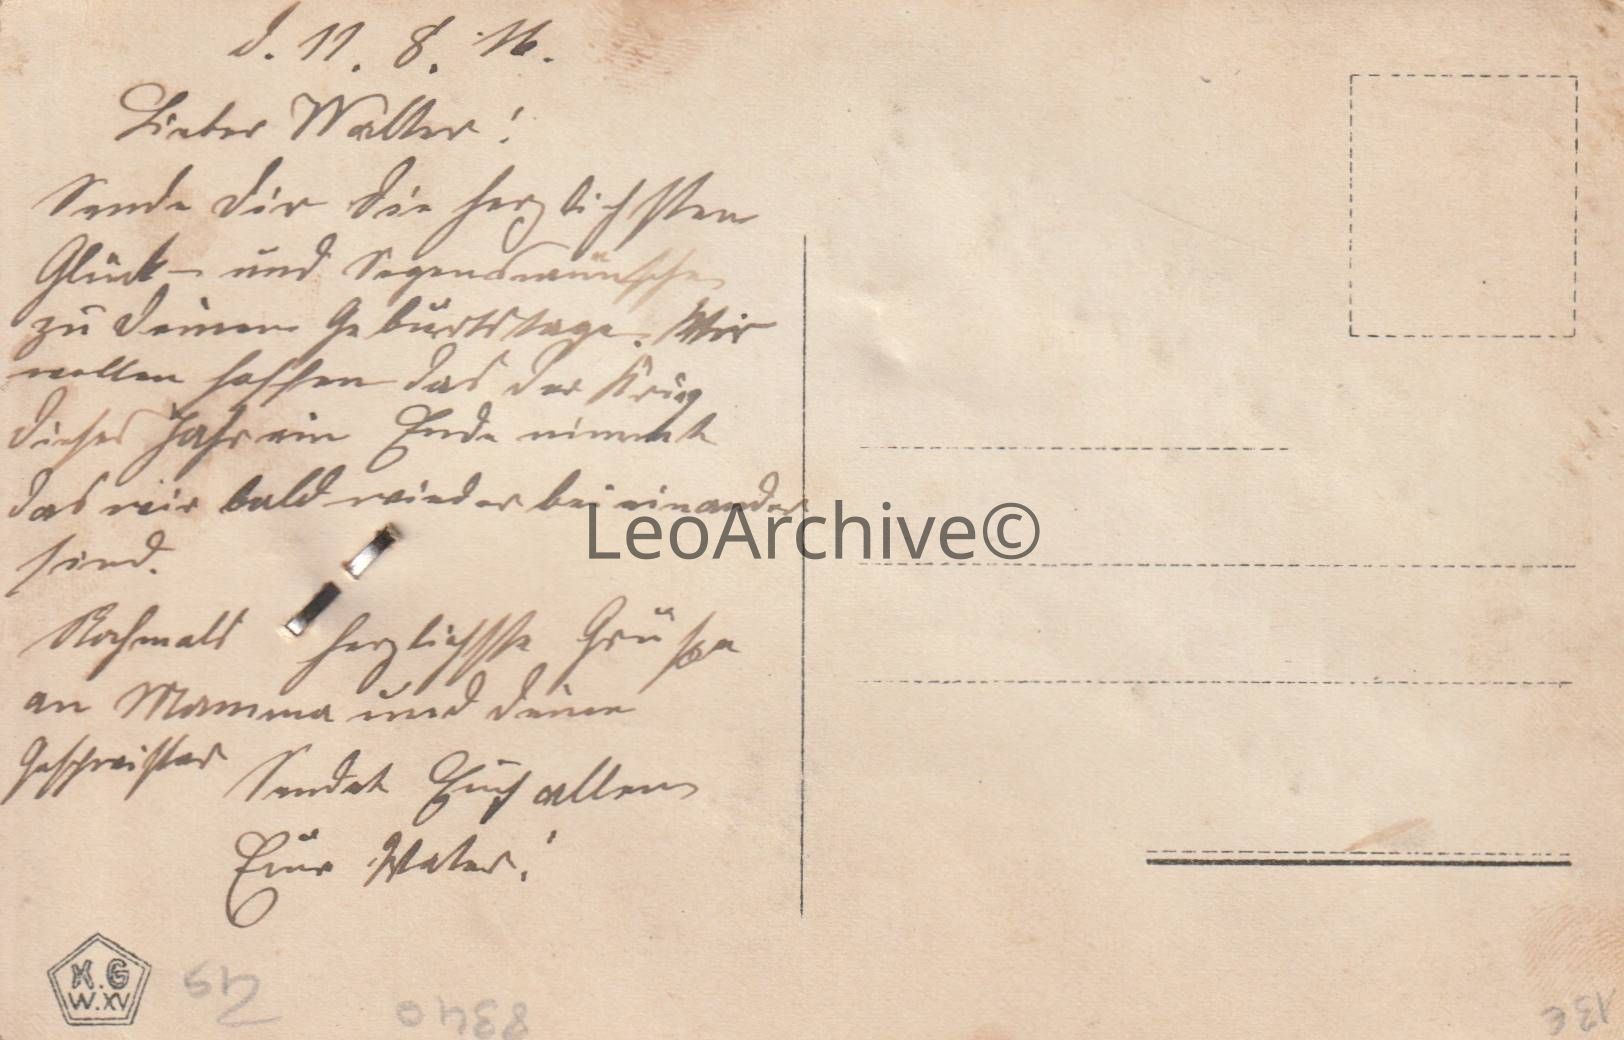 d. 11. 8. 16.
Lieber Walter!
Sende dir die herzlichsten
Glück- und Segenswünsche
zu deinem Geburtstage. Wir
wollen hoffen das der Krieg
dieses Jahr ein Ende nimmt
das wir bald wieder bei einander
sind.
Nochmals herzlichste Grüße
an Mamma und deine
Geschwister
Sendet Euch allen
Euer Vater!
LeoArchive©
K.G
W.XV
8340
13€